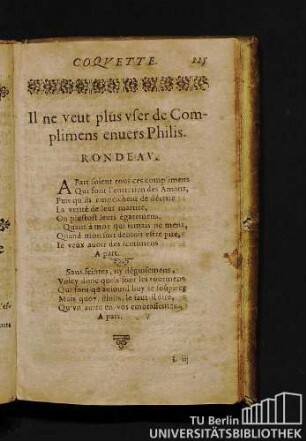 COQVETTE. 125
Il ne veut plus vser de Com-
plimens enuers Philis.
RONDEAV.
A Part soient tous ces complimens
Qui font l'entretien des Amans,
Puis qu'ils empeschent de décrire
La verité de leur martire,
Ou plustost leurs égaremens.
Quant à moy qui iamais ne mens,
Quand mon sort deuroit estre pire,
Ie veux auoir des
A part.
Sans feintes, ny déguisemens,
Voicy donc quels sont les tourmens
Qui font qu'auiourd'huy ie soûpire;
Mais quoy, Philis, le faut il dire,
Qu'vn autre en vos embrassemens,
A part.
L iij
TU Berlin
UNIVERSITÄTSBIBLIOTHEK